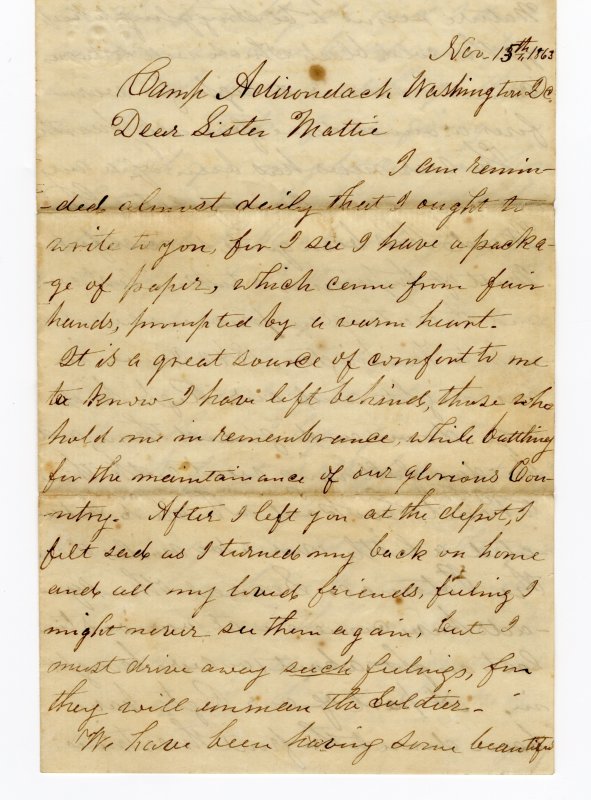 Nov 15th, 1863
Camp Adirondack Washington Dc
Dear Sister Mattie
I am remin-
-ded almost daily that I ought to
write to you, for I see I have a packa-
ge of paper, which came from fair
hands, prompted by a warm heart.
It is a great source of comfort to me
to know I have left behind, those who
hold me in remembrance, while battling
for the maintainance of our glorious Cou-
-ntry. After I left you at the depot, I
felt sad as I turned my back on home
and all my loved friends, feeling I
might never see them again, but I
must drive away such feelings, for
they will unman the Soldier.
We have been having some beautiful